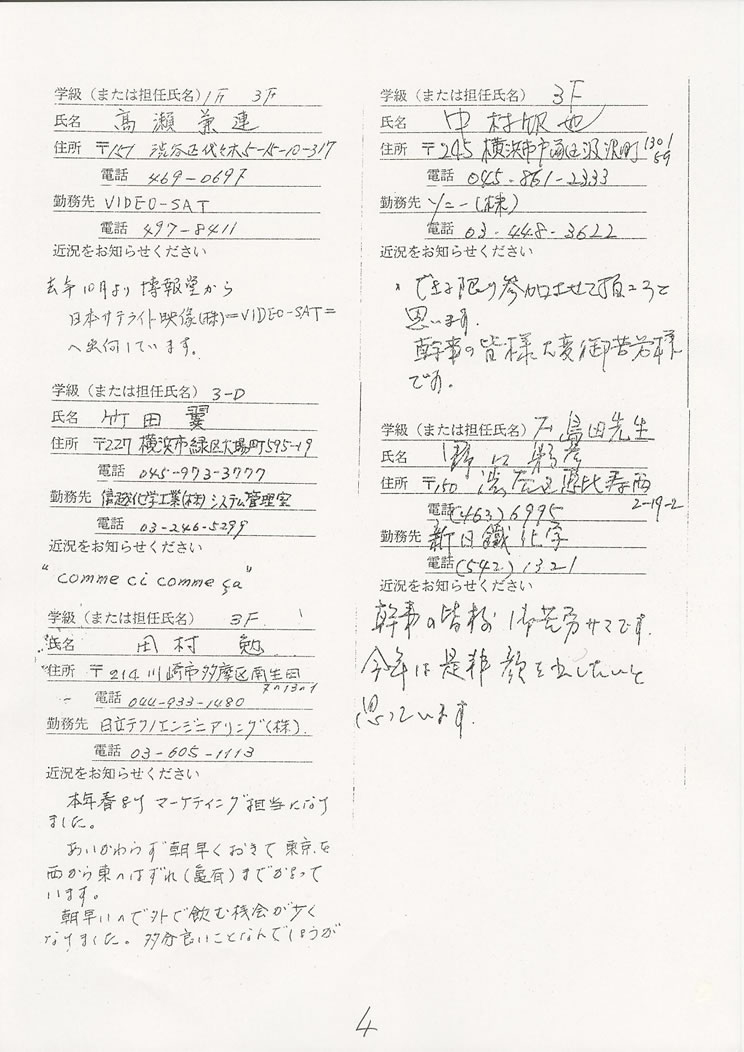 学級（または担任氏名） 1F 3F
氏名 高瀬兼連
住所 〒151 渋谷区代々木5-15-10-317
電話 469-0697
勤務先 VIDEO-SAT
電話 497-8411
近況をお知らせください
去年10月より博報堂から
日本サテライト映像(株)=VIDEO-SAT=
へ出向しています。
学級（または担任氏名） 3-D
氏名 竹田 翼
住所 〒227 横浜市緑区大場町595-19
電話 045-973-3777
勤務先 信越化学工業(株)システム管理室
電話 03-246-5299
近況をお知らせください
"comme ci comme ça"
学級（または担任氏名） 3F
氏名 田村 勉
住所 〒214 川崎市多摩区南生田
電話 044-933-1480
勤務先 日立テクノエンジニアリング(株).
電話 03-605-1113
近況をお知らせください
本年春よりマーケティング担当になり
ました。
あいかわらず朝早くおきて東京を
西から東へはずれ(亀有)までかよって
います。
朝早いので外で飲む機会が少く
なりました。多分良いことなんでしょうが
学級（または担任氏名） 3F
氏名 中村
住所 〒245 横浜市戸塚区汲沢町1301
59
電話 045-861-2333
勤務先 ソニー(株)
電話 03-448-3622
近況をお知らせください
できる限り参加させて頂こうと
思います.
幹事の皆様大変御苦労様
です.
学級（または担任氏名） 島田先生
氏名 野口
住所 〒150 渋谷区恵比寿西
2-19-2
電話 (463)6995
勤務先 新日鐵化学
電話 (542)1321
近況をお知らせください
幹事の皆様 御苦労サマです.
今年は是非顔を出したいと
思っています.
4